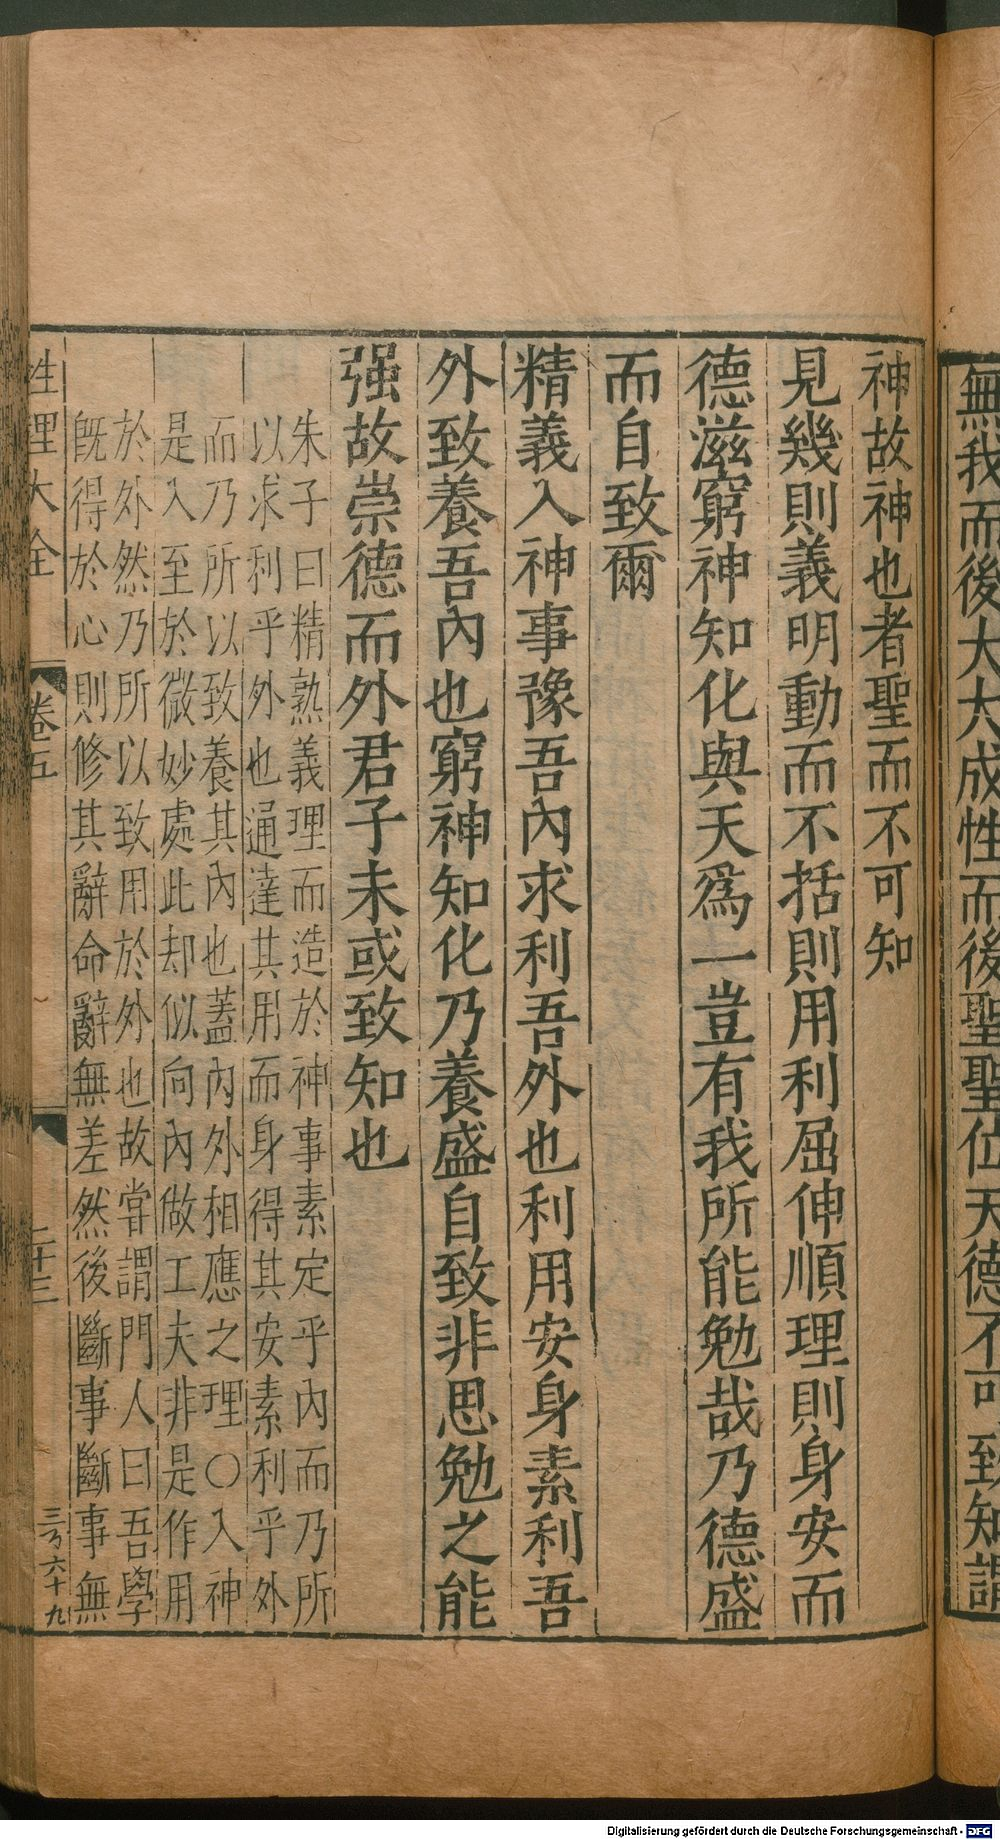 無我而後大大成性而後聖聖位天德不可致知謂
神故神也者聖而不可知
見幾則義明動而不括則用利屈伸順理則身安而
德滋窮神知化與天爲一豈有我所能勉哉乃德盛
而自致爾
精義入神事豫吾內求利吾外也利用安身素利吾
外致養吾內也窮神知化乃養盛自致非思勉之能
强故崇德而外君子未或致知也
朱子曰精熟義理而造於神事素定乎內而乃所
以求利乎外也通達其用而身得其安素利乎外
而乃所以致養其內也蓋內外相應之理○入神
是入至於微妙處此却似向內做工夫非是作用
於外然乃所以致用於外也故嘗謂門人曰吾學
旣得於心則修其辭命辭無差然後斷事斷事無
性理大全 卷五 二十三 三万六十九
Digitalisierung gefördert durch die Deutsche Forschungsgemeinschaft - DFG